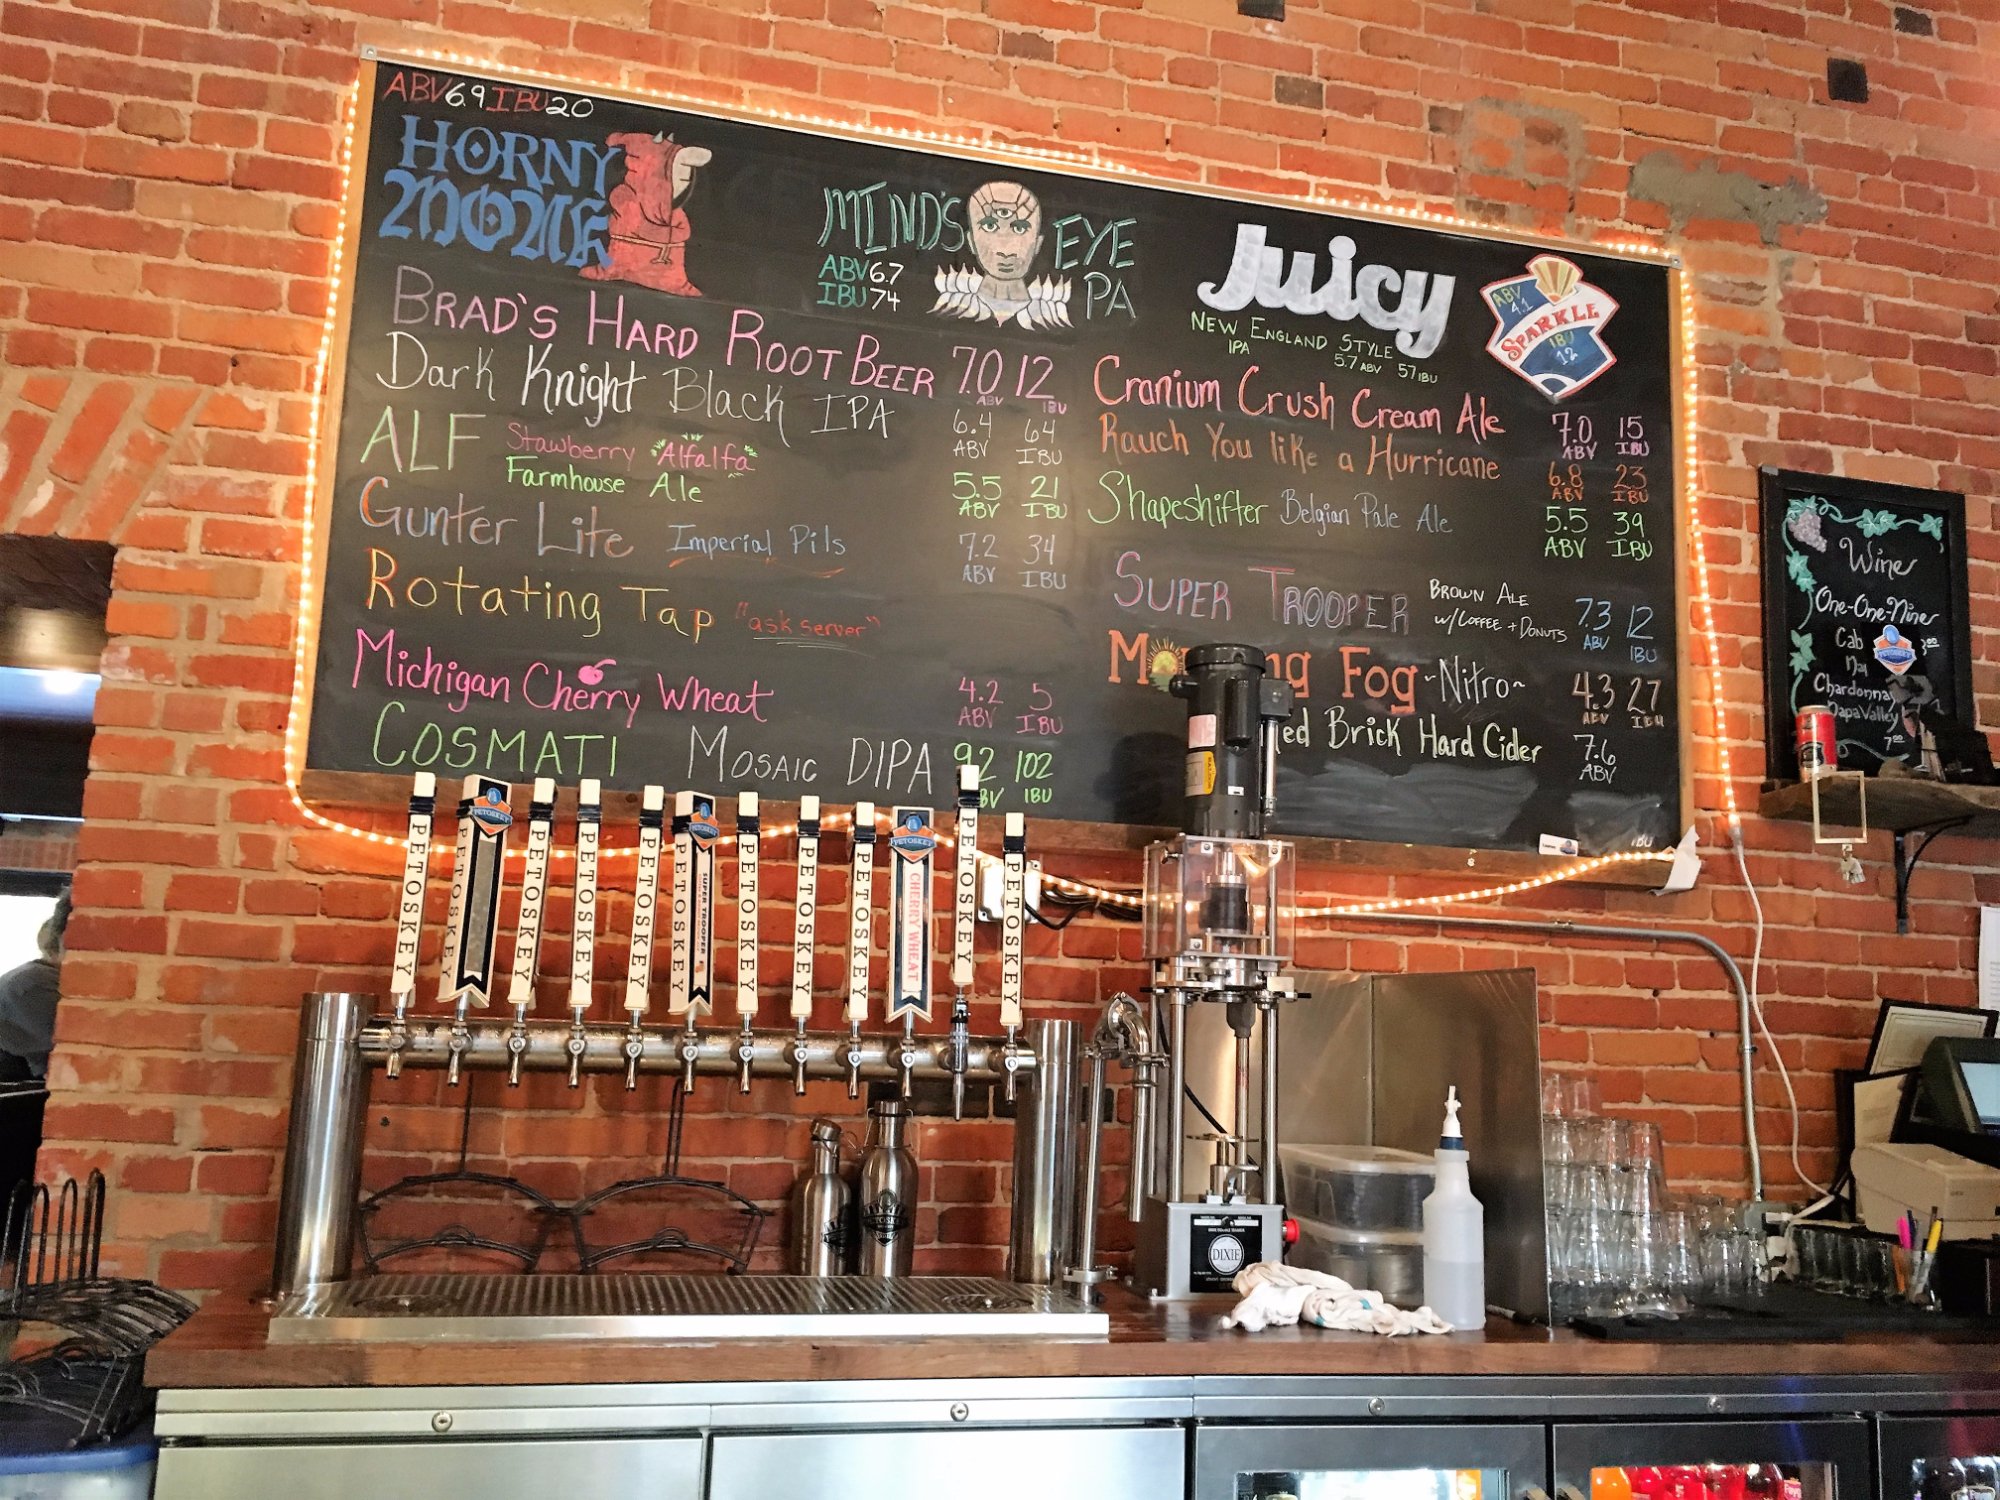 ABV 6.9 IBU 20
HORNY
MONK
MIND'S EYE
ABV 6.7
IBU 74
PA
Juicy
NEW ENGLAND STYLE
IPA
5.7 ABV 57 IBU
ABV
4.1
SPARKLE
IBU
12
BRAD'S HARD ROOT BEER 7.0 12
ABV IBU
Dark Knight Black IPA 6.4 64
ABV IBU
ALF Stawberry "Alfalfa"
Farmhouse Ale 5.5 21
ABV IBU
Gunter Lite Imperial Pils 7.2 34
ABV IBU
Rotating Tap "ask server"
Michigan Cherry Wheat 4.2 5
ABV IBU
COSMATI MOSAIC DIPA 9.2 102
BV IBU
Cranium Crush Cream Ale 7.0 15
ABV IBU
Rauch You like a Hurricane 6.8 23
ABV IBU
Shapeshifter Belgian Pale Ale 5.5 39
ABV IBU
SUPER TROOPER BROWN ALE
W/COFFEE + DONUTS 7.3 12
ABV IBU
M ng Fog ~Nitro~ 4.3 27
ABV IBU
ed Brick Hard Cider 7.6
ABV
IBU
Wine
One-One-Niner
Cab
Nay
Chardonnay
Napa Valley
7.00
PETOSKEY
PETOSKEY
PETOSKEY
PETOSKEY
PETOSKEY
PETOSKEY
SUPER TROOPER
PETOSKEY
PETOSKEY
PETOSKEY
PETOSKEY
CHERRY WHEAT
PETOSKEY
PETOSKEY
PETOSKEY
DIXIE